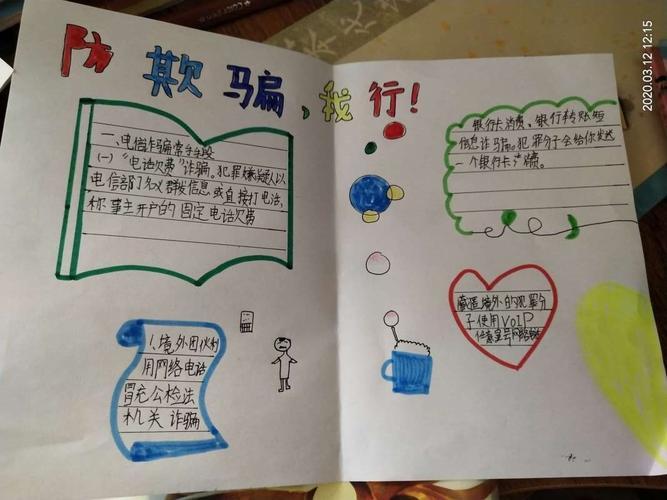 防欺骗，我行！
一、电信诈骗常手段
(一)“电话欠费”诈骗。犯罪嫌疑人以
电信部门名义群拨信息或直接打电话,
称事主开户的固定电话欠费
银行卡消费、银行转账短
信息诈骗。犯罪分子会给你发送
一个银行卡消费。
1、境外团伙利
用网络电话
冒充公检法
机关诈骗
境外的犯罪分
子使用VOIP
2020.03.12 12:15